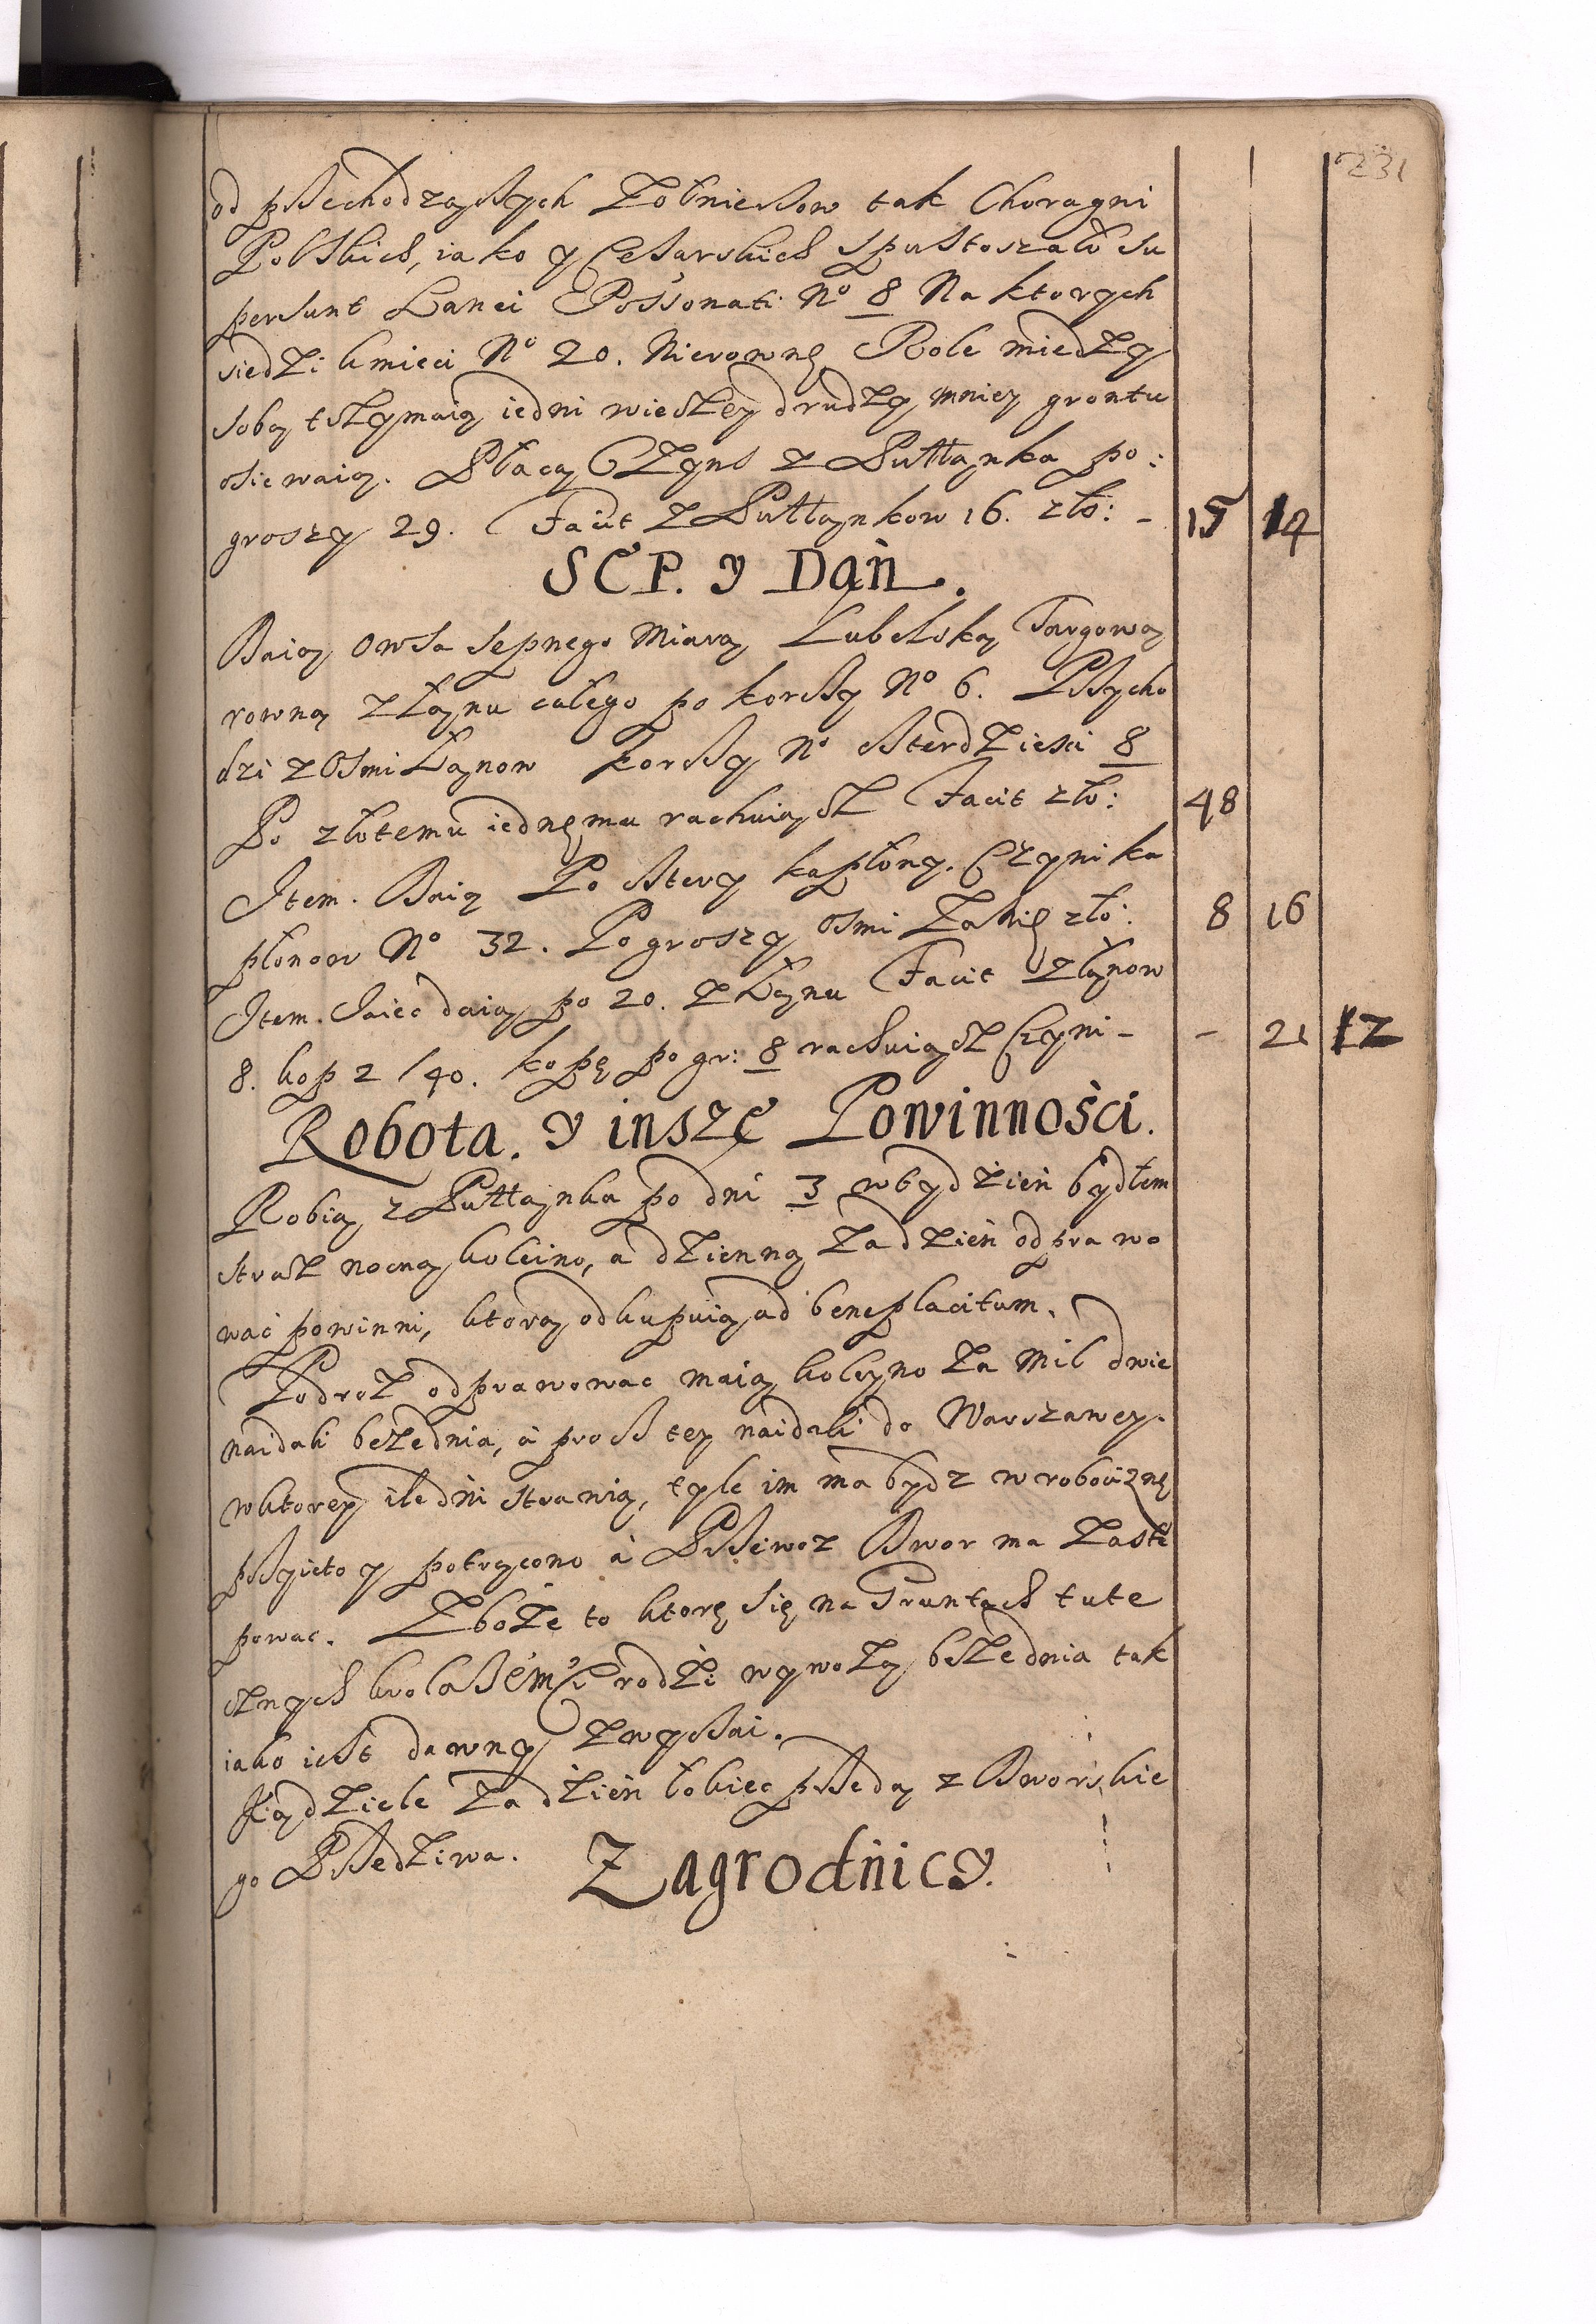 231
od pszechodząszych Zołnieszow tak Choragni
Polskich, iako y Cesarskich spustoszało Su
persunt Lanei Possonati No 8 Na ktorych
siedzi kmieci No 20. Nierowne Role miedzy
sobą tszymaią iedni wieszey drudzy mniey grontu
osiewaią. Płacą Czyns z Pułłąnka po:
groszy 29. Facit z Pułłąnkow 16. zło: - 15 14
SEP. y Dań.
Daią owsa sepnego Miarą Lubelską Targową
rowną z Łąnu całego po korszy No 6. Pszycho
dzi z Osmi Łąnow korszy No szterdziesci 8
Po złotemu iednemu rachuiąsz Facit zło: 48
Item. Daią Po sztery kapłony. Czyni ka
płonow No 32. Po groszy osmi Zakie zło: 8 16
Item. Jaiec daią po 20. z Łąnu Facit z łąnow
8. kop 2 / 40. kopę po gr: 8 rachuiąsz Czyni - - 21 12
Robota. y insze Powinności.
Robią z Pułłąnku po dni 3 w tydzień bydłem
straz nocną koleino, a dzienną za dzień odprawo
wać powinni, ktorą odkupuią ad beneplacitum.
Podroz odprawowac maią koleyno za mil dwie
naidali beze dnia, à prosztey naidali do Warszawey.
w ktorey ile dni strawią, tyle im ma bydz w robociznę
pszyieto y potrącono à Pszewoz Dwor ma zastę
powac. Zboze to ktore się na Gruntach tute
sznych rodzi wywozą besze dnia tak
iako iest dawny zwyszai.
Kądziele za dzień łokiec pszedą z Dworskie
go Pszedziwa.
Zagrodnicy.